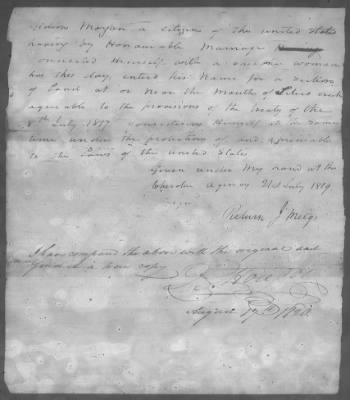 Gideon Morgan a citizen of the united States
having by Honourable Marriage
connected Himself with a woman
has this day, entered his Name for a
of Land at or near the Mouth of creek
agreeable to the provisions of the treaty of the
8th July 1817 considering Himself at the same
time under the protection of, and amenable
to the Laws of the United States
Given under my hand at the
Cherokee Agency 21st July 1819
Signed
Return J Meigs
I have compared the above with the original and
find it a true copy
August